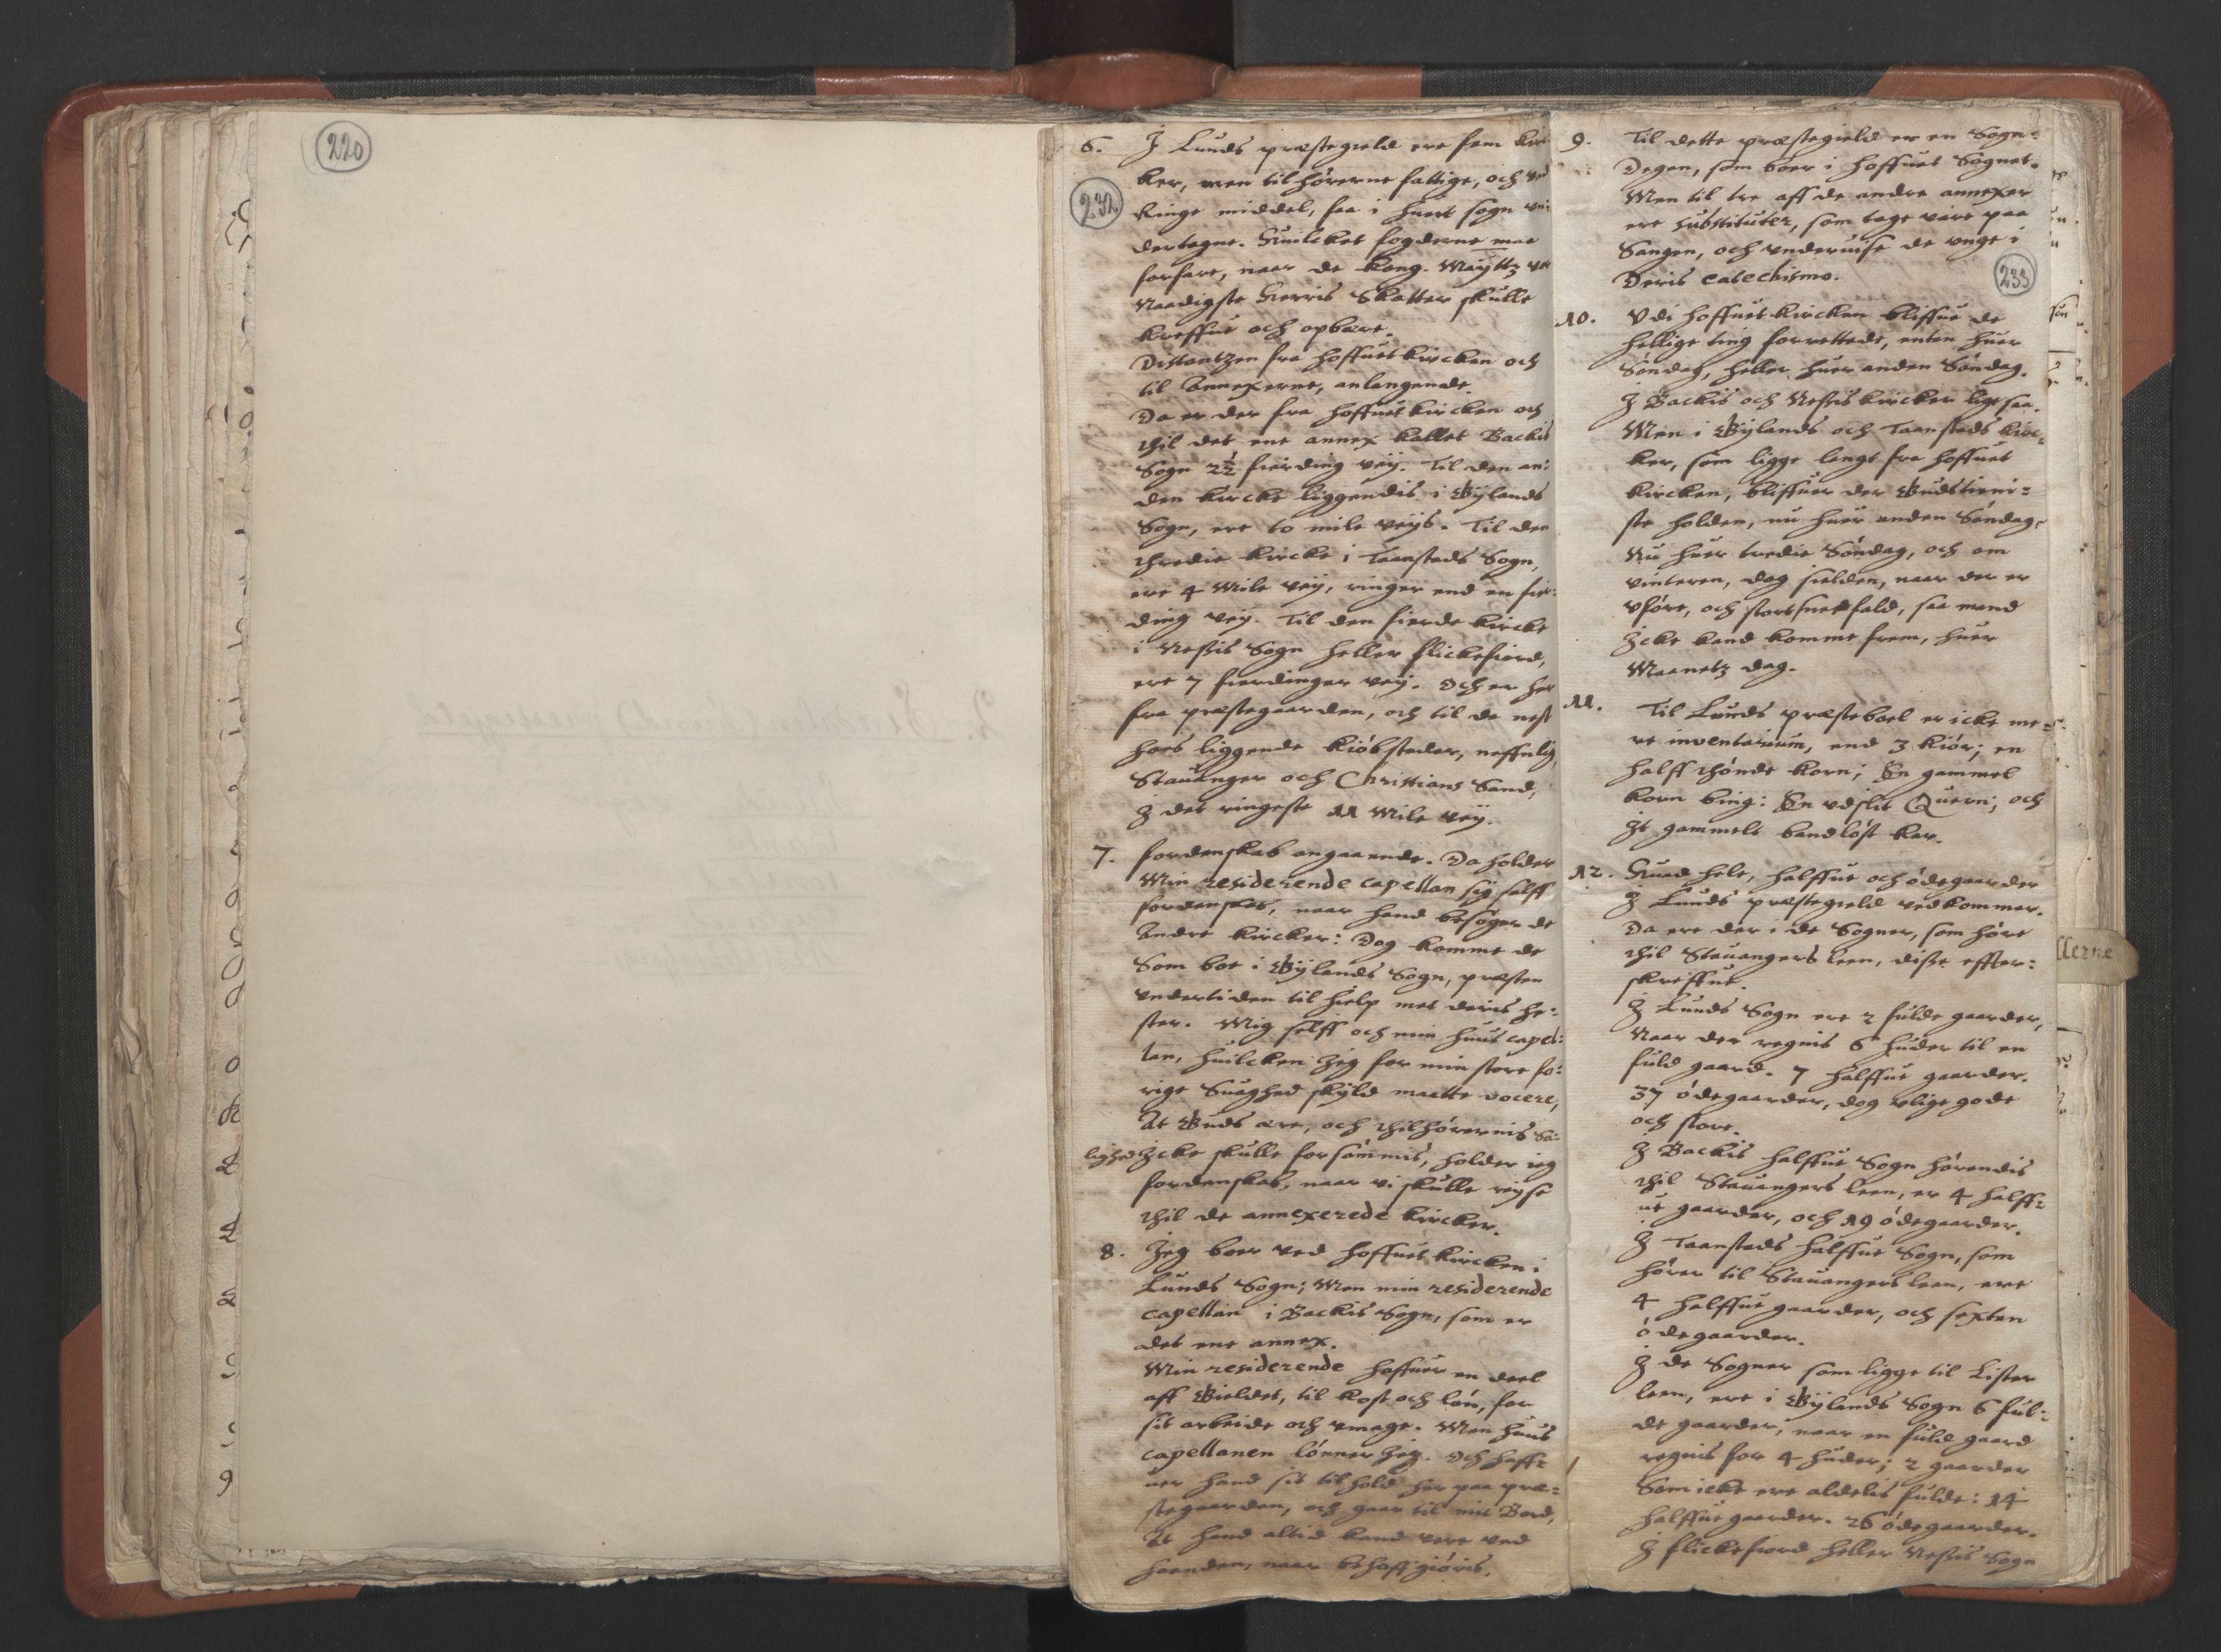 220
6. J Lunds præstegield ere fem kir
ker, men tilhørerne fattige, och ved
Ringe middel, saa i huert sogn vn:
dertagne. Huilcket fogderne maa
forfare, naar de Kong. Maÿttz vor
Naadigste Herris Skatter skulle
kreffue och opbære.
Distantzen fra hoffuet kircken och
til Annexerne, anlangende.
Da er der fra hoffuet kircken och
thil det ene annex kallet Backis
Sogn 2½ fierding veÿ. Til den an:
den kircke liggendis i Gÿlands
Sogn, ere to mile veÿs. Til den
thredie kircke i Taanstads Sogn,
ere 4 Mile veÿ, ringer end en fier:
ding veÿ. Til den fierde kircke
i Neßis Sogn heller flickefiord,
ere 7 fierdinger veÿ. Och er her
fra præstegaarden, och til de nest
hoes liggende kiøbsteder, neffnlig,
Stauanger och Christians Sand,
J det ringeste 11 Mile veÿ.
7. fordenskab angaaende. Da holder
Min residerende capellan sig selff
fordenskab, naar hand besøger de
Andre kircker: Dog komme de
Som boe i Gÿlands Sogn, præsten
vndertiden til hielp met deris he:
ster. Mig selff och min huus capel:
lan, huilcken Jeg for min store fo:
rige Suaghed skÿld maatte vocere,
At Guds ære, och thilhørernis Sa:
lighed Jcke skulle forsømmis, holder ieg
fordenskab, naar vi skulle reÿse
thil de annexerede kircker.
8. Jeg boer ved hoffuet kircken i
Lunds Sogn; Men min residerende
capellan i Backis Sogn, som er
det ene annex.
Min residerende haffuer en deel
aff Gieldet, til kost och løn, for
sit arbeide och vmage. Men huus
capellanen lønner Jeg. Och haff:
uer hand sit tilhold her paa præ:
stegaarden, och gaar til mit Bord,
At hand altid kand vere ved
haanden, naar behoff giøris.
232
9. Til dette præstegield er en Sogne:
Degen, som boer i hoffuet Sognet.
Men til tre aff de andre annexer
ere substituter, som tage vare paa
Sangen, och vnderuise de vnge i
Deris catechismo.
233
10. Vdi hoffuet kircken bliffue de
hellige ting forrettede, enten huer
Søndag, heller huer anden Søndag.
J Backis och Neßis kircker ligesaa.
Men i Gÿlands och Taanstads kirc:
ker, som ligge langt fra hoffuet
kircken, bliffuer der Gudstieni:
ste holden, nu huer anden Søndag,
Nu huer tredie Søndag, och om
vinteren, dog sielden, naar der er
vføre, och stort snefald, saa mand
Jcke kand komme frem, huer
Maanetz dag.
11. Til Lunds præsteboel er icke me:
re inventarium, end 3 kiør; en
halff thønde korn; En gammel
korn bing: En vdslit Quern; och
Jt gammelt bandløst kar.
12. Huad hele, halffue och ødegaarder
J Lunds præstegield vedkommer.
Da ere der i de Sogner, som høre
thil Stauangers leen, disse effter:
skreffne.
J Lunds Sogn ere 2 fulde gaarder,
Naar der regnis 6 huder til en
fuld gaard. 7 halffue gaarder.
37 ødegaarder, dog vlige gode
och store.
J Backis halffue Sogn hørendis
thil Stauangers leen, er 4 halff:
ue gaarder, och 19 ødegaarder.
J Taanstads halffue Sogn, som
hører til Stauangers leen, ere
4 halffue gaarder, och sexten
ødegaarder.
J de Sogner som ligge til Lister
leen, ere i Gÿlands Sogn 6 ful:
de gaarder, naar en fuld gaard
regnis for 4 huder; 2 gaarder
Som icke ere aldelis fulde: 14
halffue gaarder. 26 ødegaarder.
J flickefiord heller Neßis Sogn
llerne